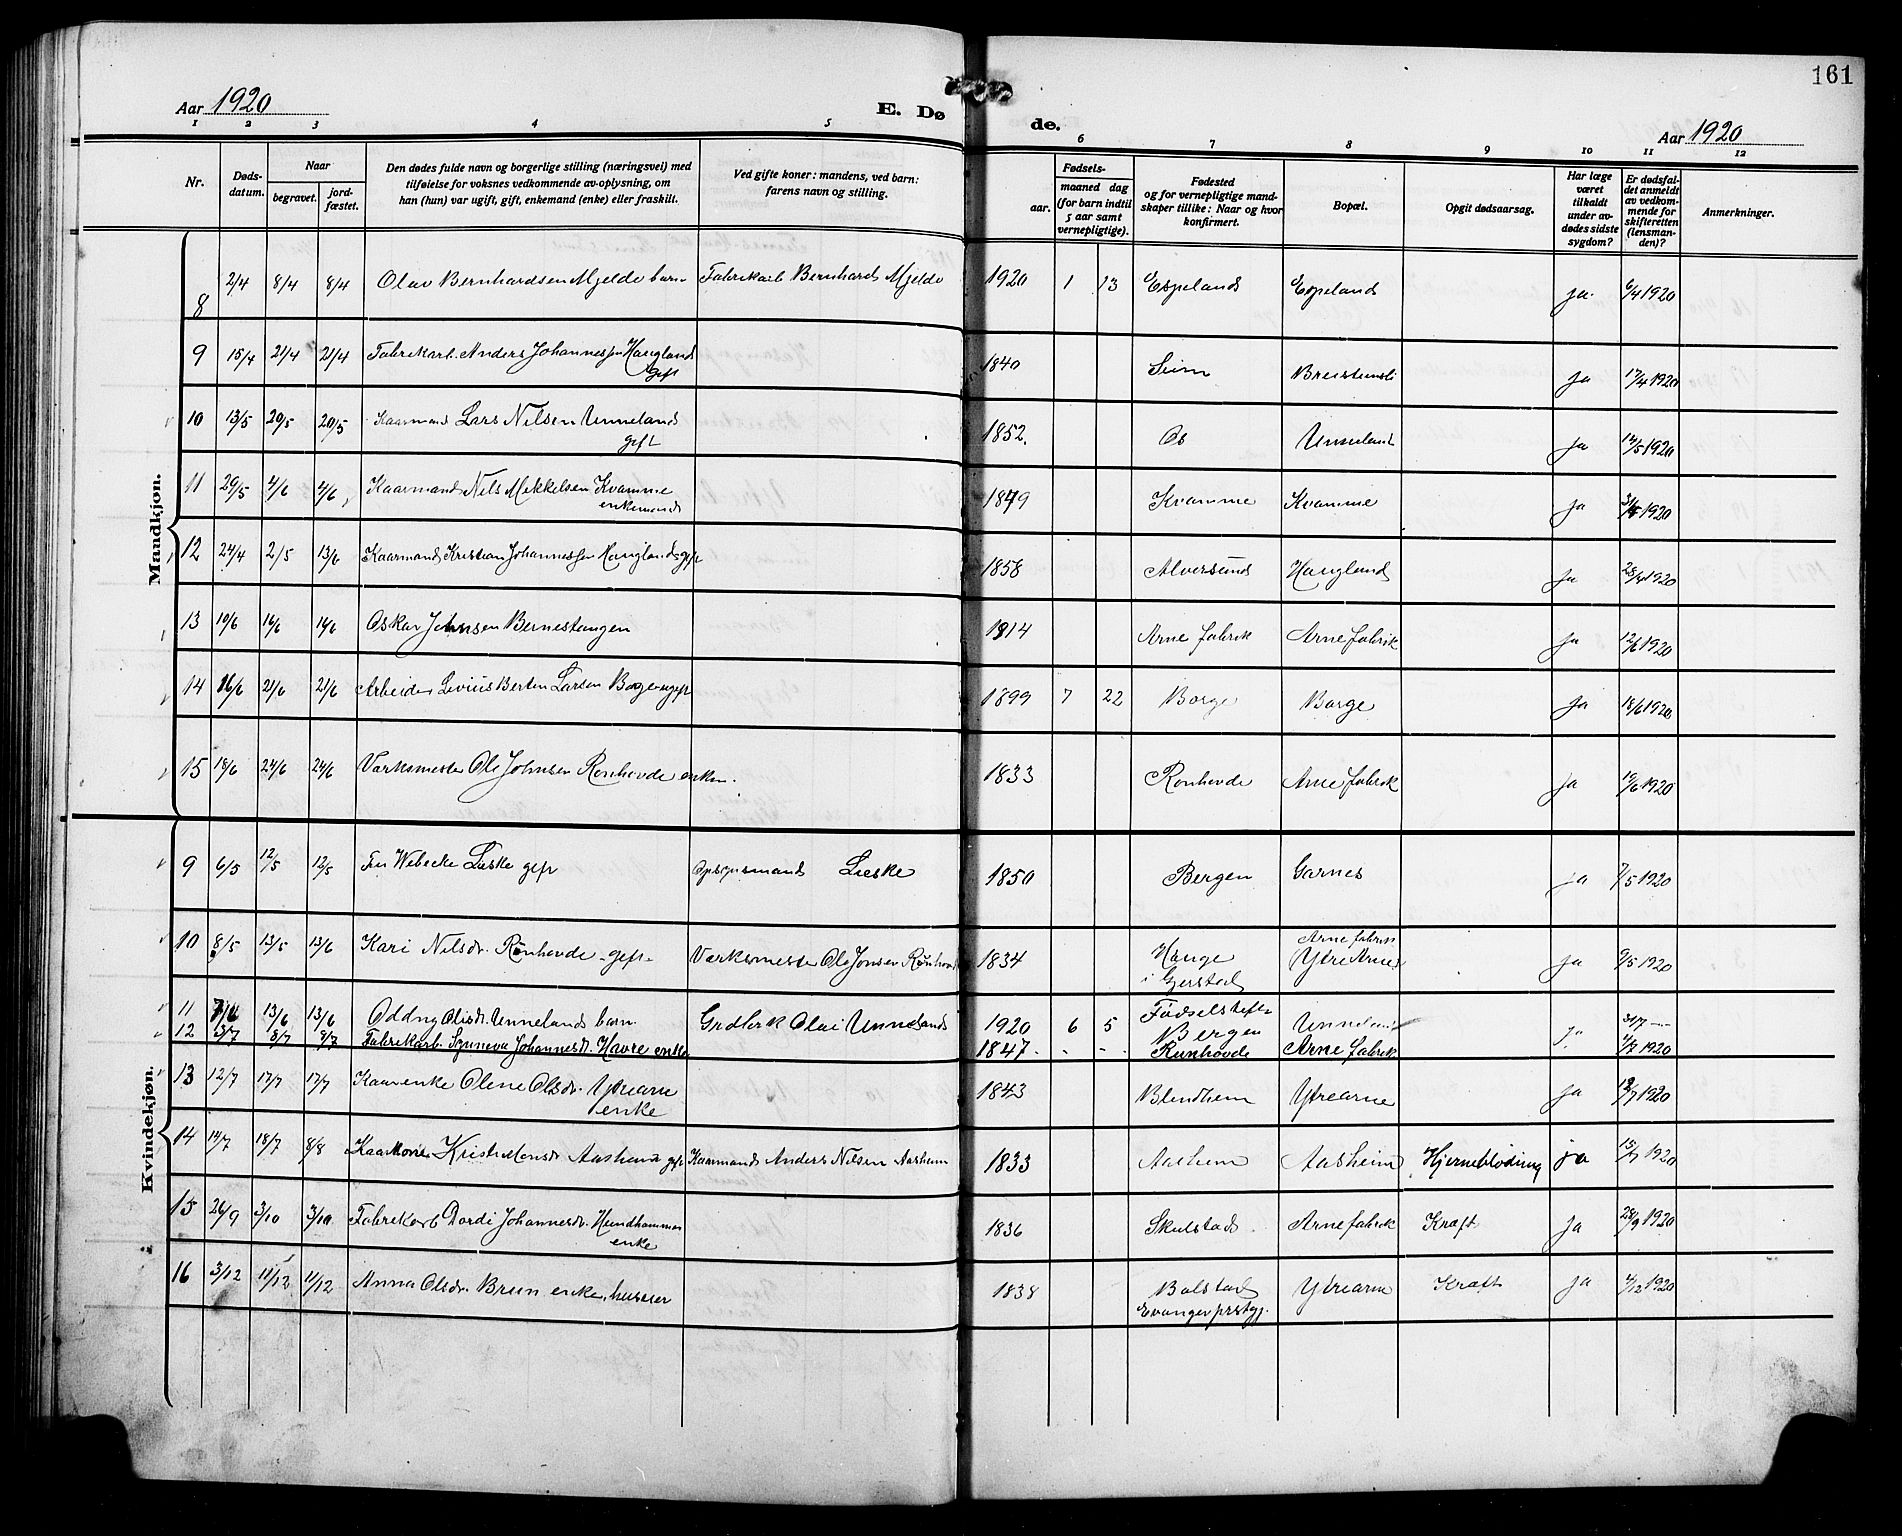 161
Aar 1920
E. Dø
de.
Aar 1920
1 2 3 4 5 6 7 8 9 10 11 12
Nr.
Døds-
datum.
Naar
begravet.
jord-
fæstet.
Den dødes fulde navn og borgerlige stilling (næringsvei) med
tilføielse for voksnes vedkommende av oplysning, om
han (hun) var ugift, gift, enkemand (enke) eller fraskilt.
Ved gifte koner: mandens, ved barn:
farens navn og stilling.
Fødsels-
aar.
maaned dag
(for barn indtil
5 aar samt
vernepligtige).
Fødested
og for vernepligtige mand-
skaper tillike: Naar og hvor
konfirmert.
Bopæl.
Opgit dødsaarsag.
Har læge
været
tilkaldt
under av-
dødes sidste
sygdom?
Er dødsfal-
det anmeldt
av vedkom-
mende for
skifteretten
(lensman-
den)?
Anmerkninger.
Mandkjøn.
8 2/4 8/4 8/4 Olav Bernhardsen Mjelde barn Fabrikarb Bernhard Mjelde 1920 1 13 Espeland Espeland ja 6/4 1920
9 15/4 21/4 21/4 Fabrikarb. Anders Johannessen Haugland 1840 Seim ja 17/4 1920
gift
10 13/5 20/5 20/5 Kaarmand Lars Nilsen Unneland 1852. Os Unneland ja 14/5 1920
gift
11 29/5 4/6 4/6 Kaarmand Nils Mikkelsen Kvamme 1849 Kvamme Kvamme ja 31/5 1920
enkemand
12 24/4 2/5 13/6 Kaarmand Kristian Johannessen Haugland gift 1858 Alversund Haugland ja 28/4 1920
13 10/6 16/6 16/6 Oskar Johnsen Bernestangen 1914 Arne fabrik Arne fabrik ja 12/6 1920
14 16/6 21/6 21/6 Arbeider Livius Berten Larsen Borge ugift 1899 7 22 Borge Borge ja 18/6 1920
15 18/6 24/6 24/6 Værksmester Ole Johnsen Rønhovde enkem. 1833 Rønhovde Arne fabrik ja 19/6 1920
Kvindekjøn.
9 6/5 12/5 12/5 Fru Webecke Lieske gift Opsynsmand Lieske 1850 Bergen Garnes ja 7/5 1920
10 8/5 13/5 13/6 Kari Nilsdr. Rønhovde gift Værksmester Ole Jonsen Rønhovde 1834 Hauge Arne fabrik ja 9/5 1920
i Gjerstad Ytre Arne
11 13/6 13/6 Oddny Olisdr. Unneland barn Olai Unneland 1920 6 5 Fødselstiften Unneland ja
Bergen
12 3/7 8/7 8/7 Fabrikarb. Synneva Johannesdr. Havre enke 1847 - - Runhovde Arne fabrik 1920
13 12/7 17/7 17/7 Kaarenke Oline Olsdr. Ytrearne 1843 Blindhem Ytrearne ja 12/7 1920
enke
14 14/7 18/7 8/8 Kaarkone Kristi Monsdr Aasheim gift Kaarmand Anders Nilsen Aasheim 1833 Aasheim Aasheim Hjerneblødning ja 15/7 1920
15 26/9 3/10 3/10 Fabrikarb Dordi Johannesdr. Hundhammer 1836 Skulstad Arne fabrik Kræft ja 28/9 1920
enke
16 3/12 11/12 11/12 Anna Olsdr. Brun enke, husseier 1838 Bolstad Ytrearne Kræft ja 4/12 1920
Evanger prstgj.